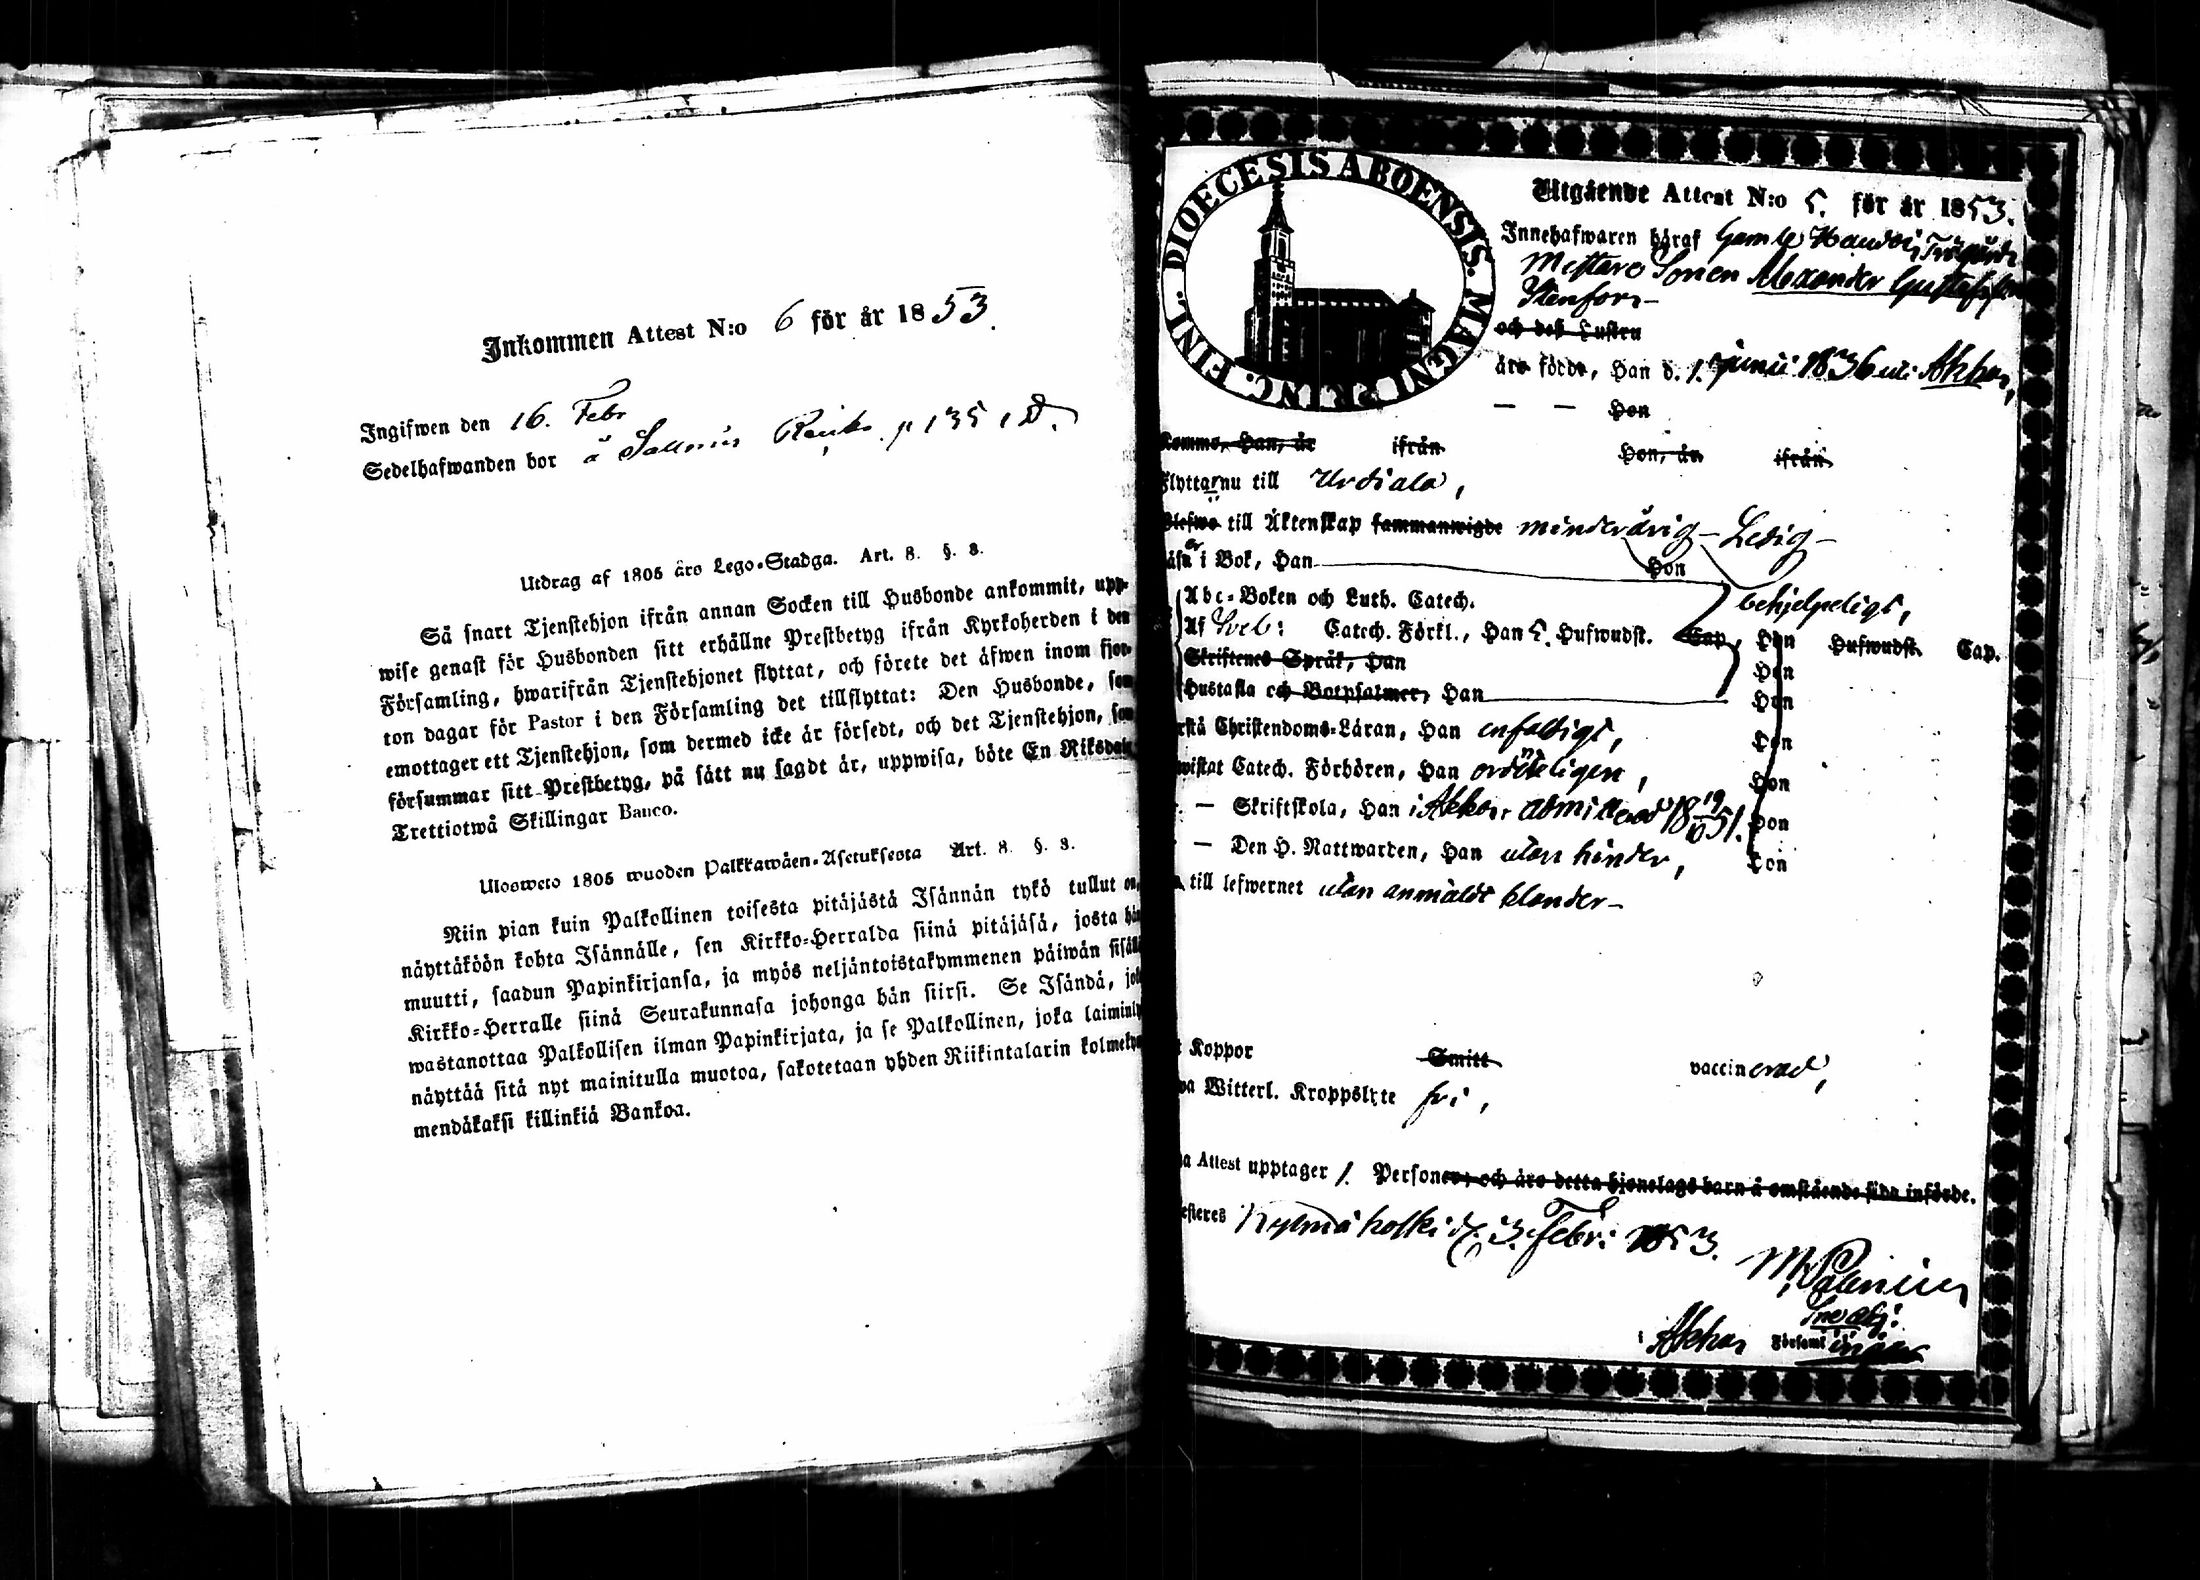 Inkommen Attest N:o 6 för år 1853.
Ingifwen den 16. Febr
Sedelhafwanden bor å p 135
Utdrag af 1805 års Lego-Stadga. Art. 8. §. 8.
Så snart Tjenstehjon ifrån annan Socken till Husbonde ankommit, upp-
wise genast för Husbonden sitt erhållne Prestbetyg ifrån Kyrkoherden i den
Församling, hwarifrån Tjenstehjonet flyttat, och förete det äfwen inom fjor-
ton dagar för Pastor i den Församling det tillflyttat: Den Husbonde, som
emottager ett Tjenstehjon, som dermed icke är försedt, och det Tjenstehjon, som
försummar sitt Prestbetyg, på sätt nu sagdt är, uppwisa, böte En Riksdaler
Trettiotwå Skillingar Banco.
Ulosweto 1805 wuoden Palkkawäen-Asetuksesta Art. 8. §. 8.
Niin pian kuin Palkollinen toisesta pitäjästä Isännän tykö tullut on,
näyttäköön kohta Isännälle, sen Kirkko-Herralda siinä pitäjäsä, josta hän
muutti, saadun Papinkirjansa, ja myös neljäntoistakymmenen päiwän sisällä
Kirkko-Herralle siinä Seurakunnasa johonga hän siirsi. Se Isändä, joka
wastanottaa Palkollisen ilman Papinkirjata, ja se Palkollinen, joka laiminly
näyttää sitä nyt mainitulla muotoa, sakotetaan yhden Riikintalarin kolmeky
mendäkaksi killinkiä Bankoa.
DIOECESIS ABOENSIS. MAGNI PRINC. FINL.
Utgående Attest N:o 5. för år 1853.
Innehafwaren häraf Gamle Trägårds
Mästare Sonen Alexander Gustafsson
Stenfors
och deß Hustru
äro födde, Han d. 1. Junii 1836 uti Akkas,
— — Hon
Komne, Han, år ifrån Hon, år ifrån
Flyttar nu till Urdiala,
Blefwo till Äktenskap sammanwigde minderårig – Ledig –
i Bok, Han Hon
Abc-Boken och Luth. Catech. behjelpeligt,
Af Sveb: Catech. Förkl., Han 5. Hufwudst. Cap, Hon Hufwudst. Cap.
Skriftenes Språk, Han Hon
Hustafla och Botpsalmer, Han Hon
rstå Christendoms-Läran, Han enfaldigt, Hon
wistat Catech. Förhören, Han ordenteligen, Hon
— Skriftskola, Han i Akkas admitterad 18 19/10 51. Hon
— Den H. Nattwarden, Han utan hinder, Hon
till lefwernet utan anmäldt klander –
t Koppor Smitt vaccinerad,
wa Witterl. Kroppslyte fri,
na Attest upptager 1. Personer, och äro detta hjonelags barn å omstående sida införde.
esteras Kylmäkoski d. 3. Febr: 1853.
M. Salenius
i Akkas Församl